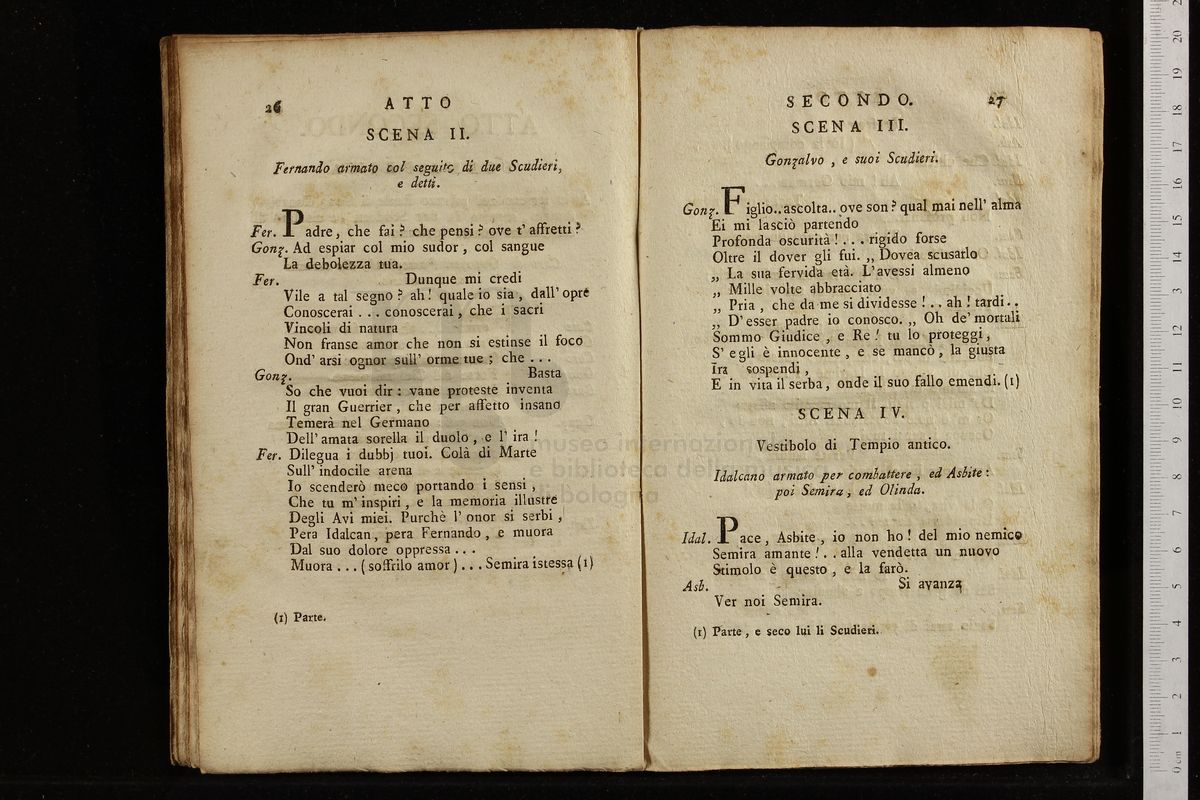 26
ATTO
SCENA II.
Fernando armato col seguito di due Scudieri,
e detti.
Fer. Padre, che fai? che pensi? ove t'affretti?
Gonz. Ad espiar col mio sudor, col sangue
La debolezza tua.
Fer. Dunque mi credi
Vile a tal segno? ah! quale io sia, dall'opre
Conoscerai... conoscerai, che i sacri
Vincoli di natura
Non franse amor che non si estinse il foco
Ond'arsi ognor sull'orme tue; che...
Gonz. Basta
So che vuoi dir: vane proteste inventa
Il gran Guerrier, che per affetto insano
Temerà nel Germano
Dell'amata sorella il duolo, e l'ira!
Fer. Dilegua i dubbj tuoi. Colà di Marte
Sull'indocile arena
Io scenderò meco portando i sensi,
Che tu m'inspiri, e la memoria illustre
Degli Avi miei. Purchè l'onor si serbi,
Pera Idalcan, pera Fernando, e muora
Dal suo dolore oppressa...
Muora... (soffrilo amor)... Semira istessa (1)
(1) Parte.
SECONDO.
27
SCENA III.
Gonzalvo, e suoi Scudieri.
Gonz. Figlio.. ascolta.. ove son? qual mai nell'alma
Ei mi lasciò partendo
Profonda oscurità!... rigido forse
Oltre il dover gli fui. „ Dovea scusarlo
„ La sua fervida età. L'avessi almeno
„ Mille volte abbracciato
„ Pria, che da me si dividesse!.. ah! tardi..
„ D'esser padre io conosco. „ Oh de'mortali
Sommo Giudice, e Re! tu lo proteggi,
S'egli è innocente, e se mancò, la giusta
Ira sospendi,
E in vita il serba, onde il suo fallo emendi. (1)
SCENA IV.
Vestibolo di Tempio antico.
Idalcano armato per combattere, ed Asbite:
poi Semira, ed Olinda.
Idal. Pace, Asbite, io non ho! del mio nemico
Semira amante!.. alla vendetta un nuovo
Stimolo è questo, e la farò.
Asb. Si avanza
Ver noi Semira.
(1) Parte, e seco lui li Scudieri.
museo internazionale
e biblioteca della musica
di bologna
0 cm 1 2 3 4 5 6 7 8 9 10 11 12 13 14 15 16 17 18 19 20